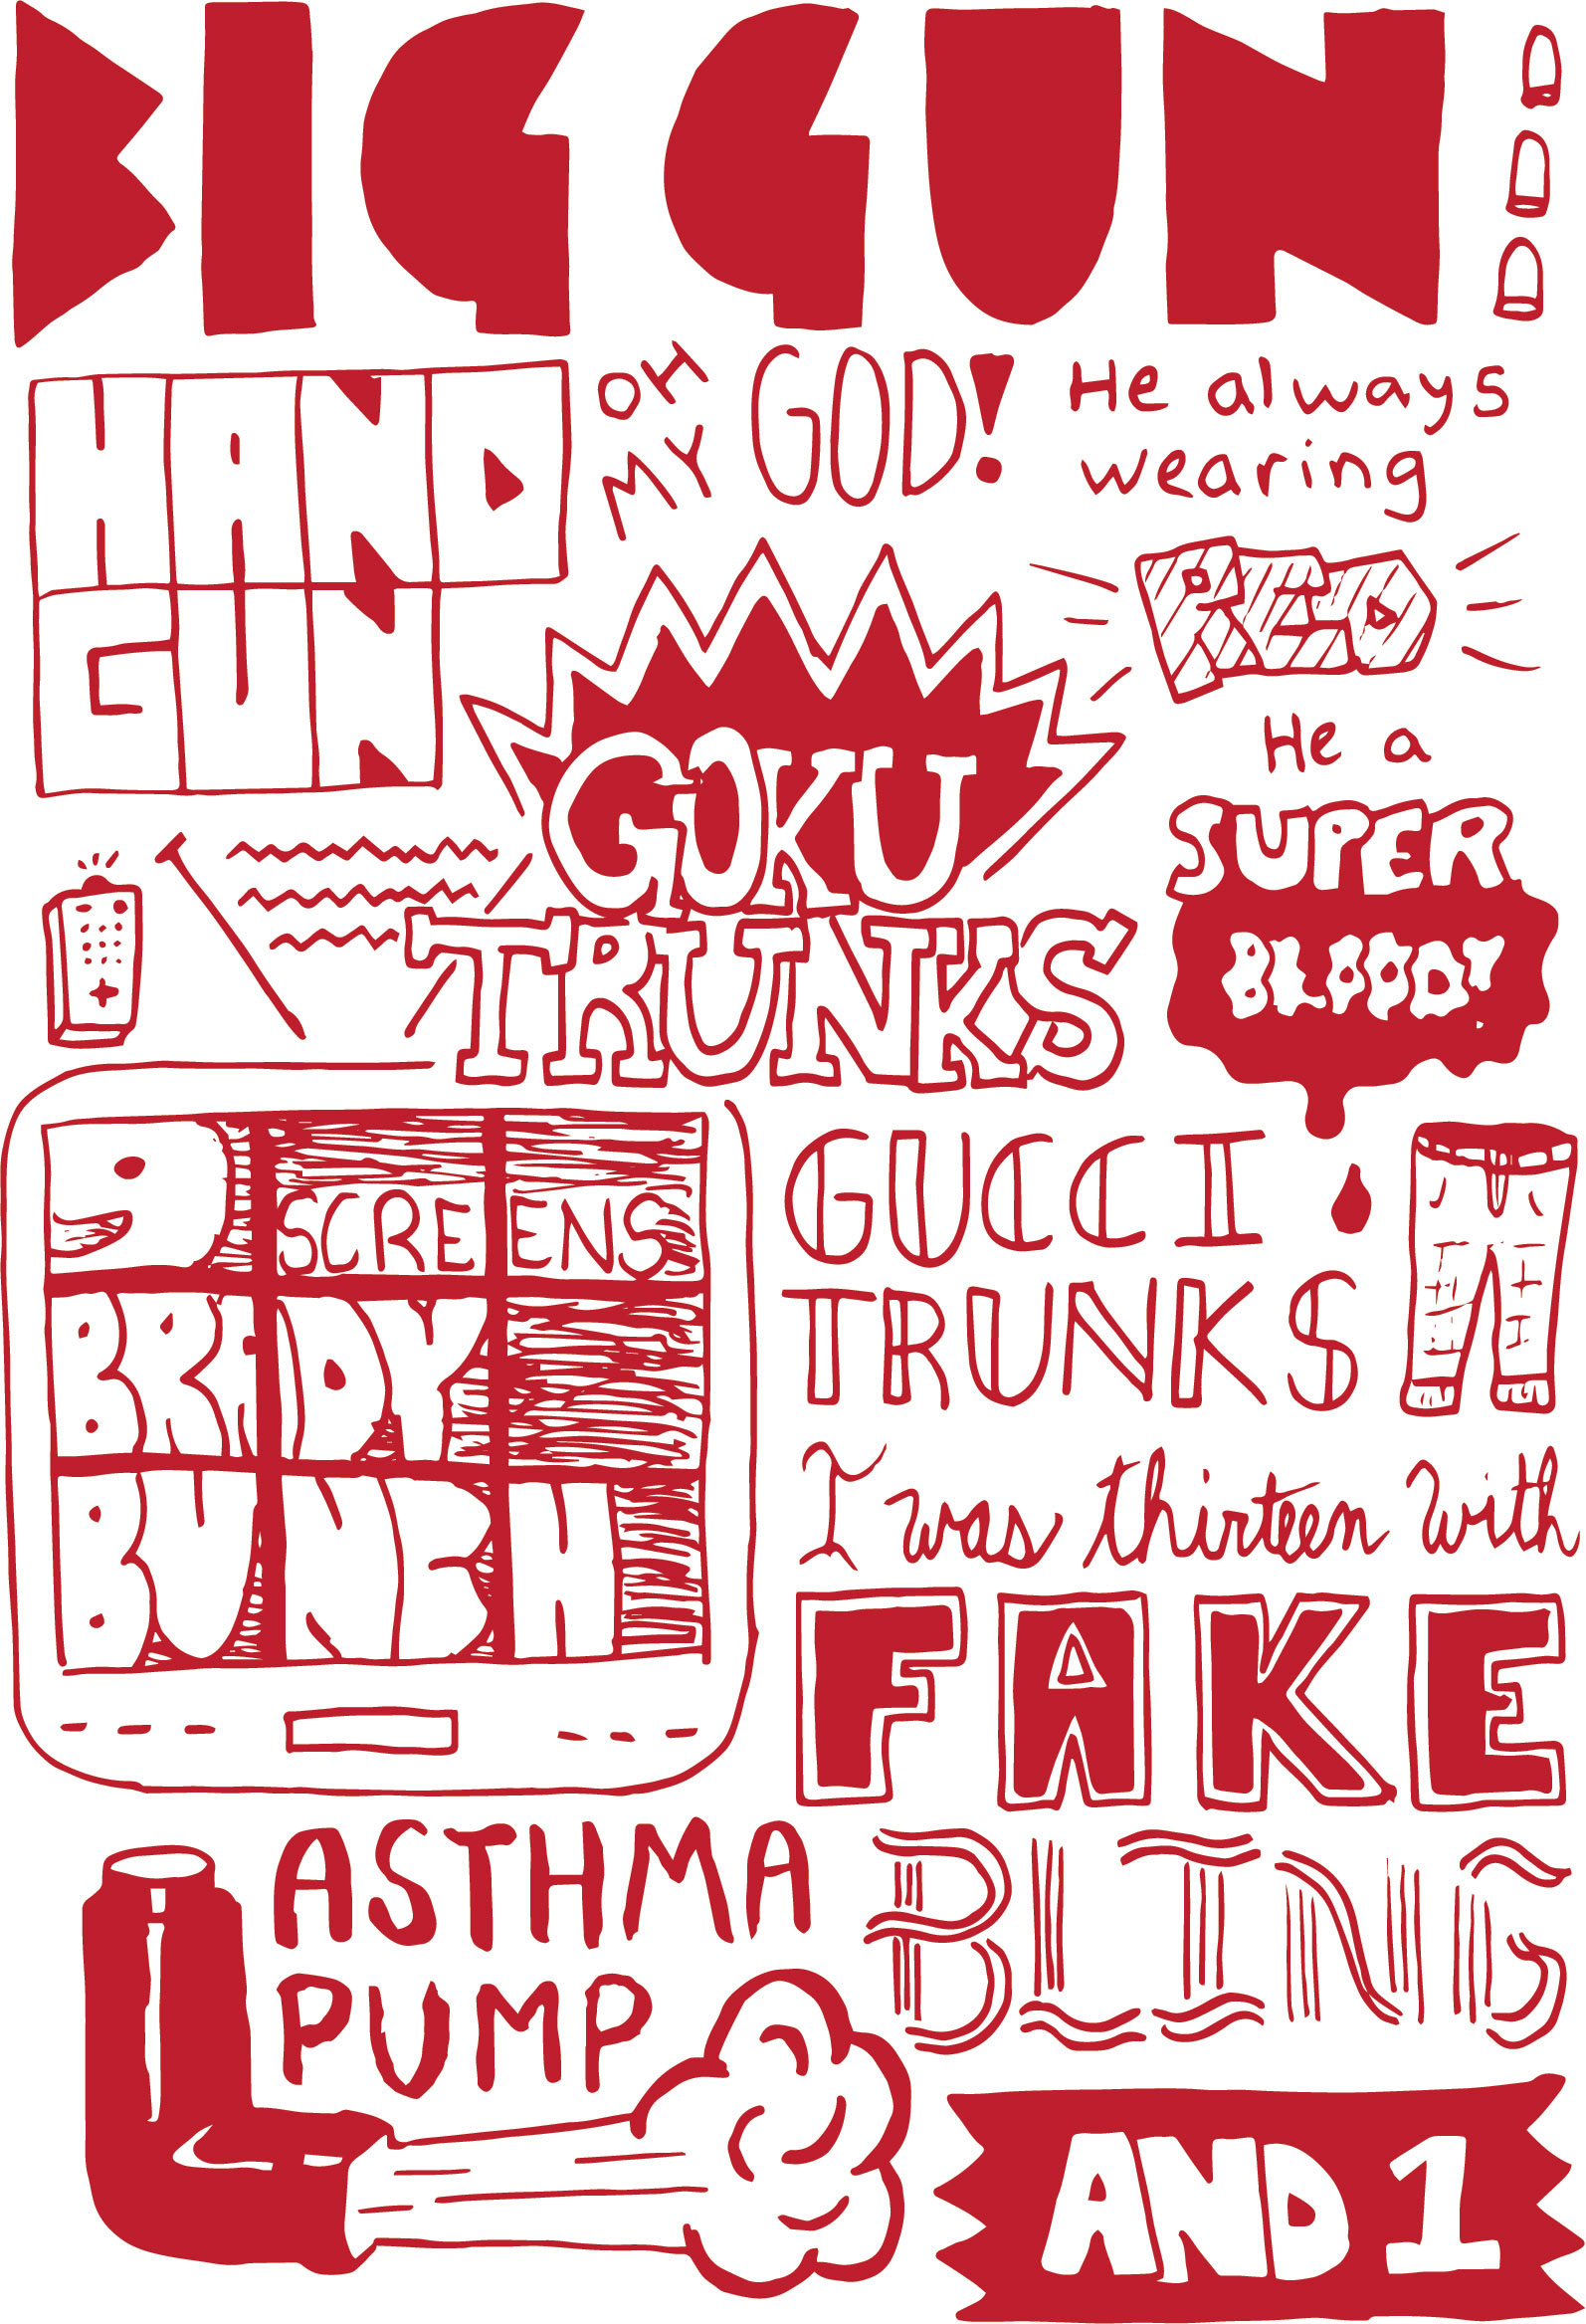 BIG GUN
HAND
GUN
OH
MY
GOD!
He always
wearing
RED
He a
SUPER
BLOOD
GOKU
TRUNKS
SCREENS
BREADY
GUCCI
TRUNKS
I was thirteen with
FAKE
BLING
ASTHMA
PUMP
AND 1